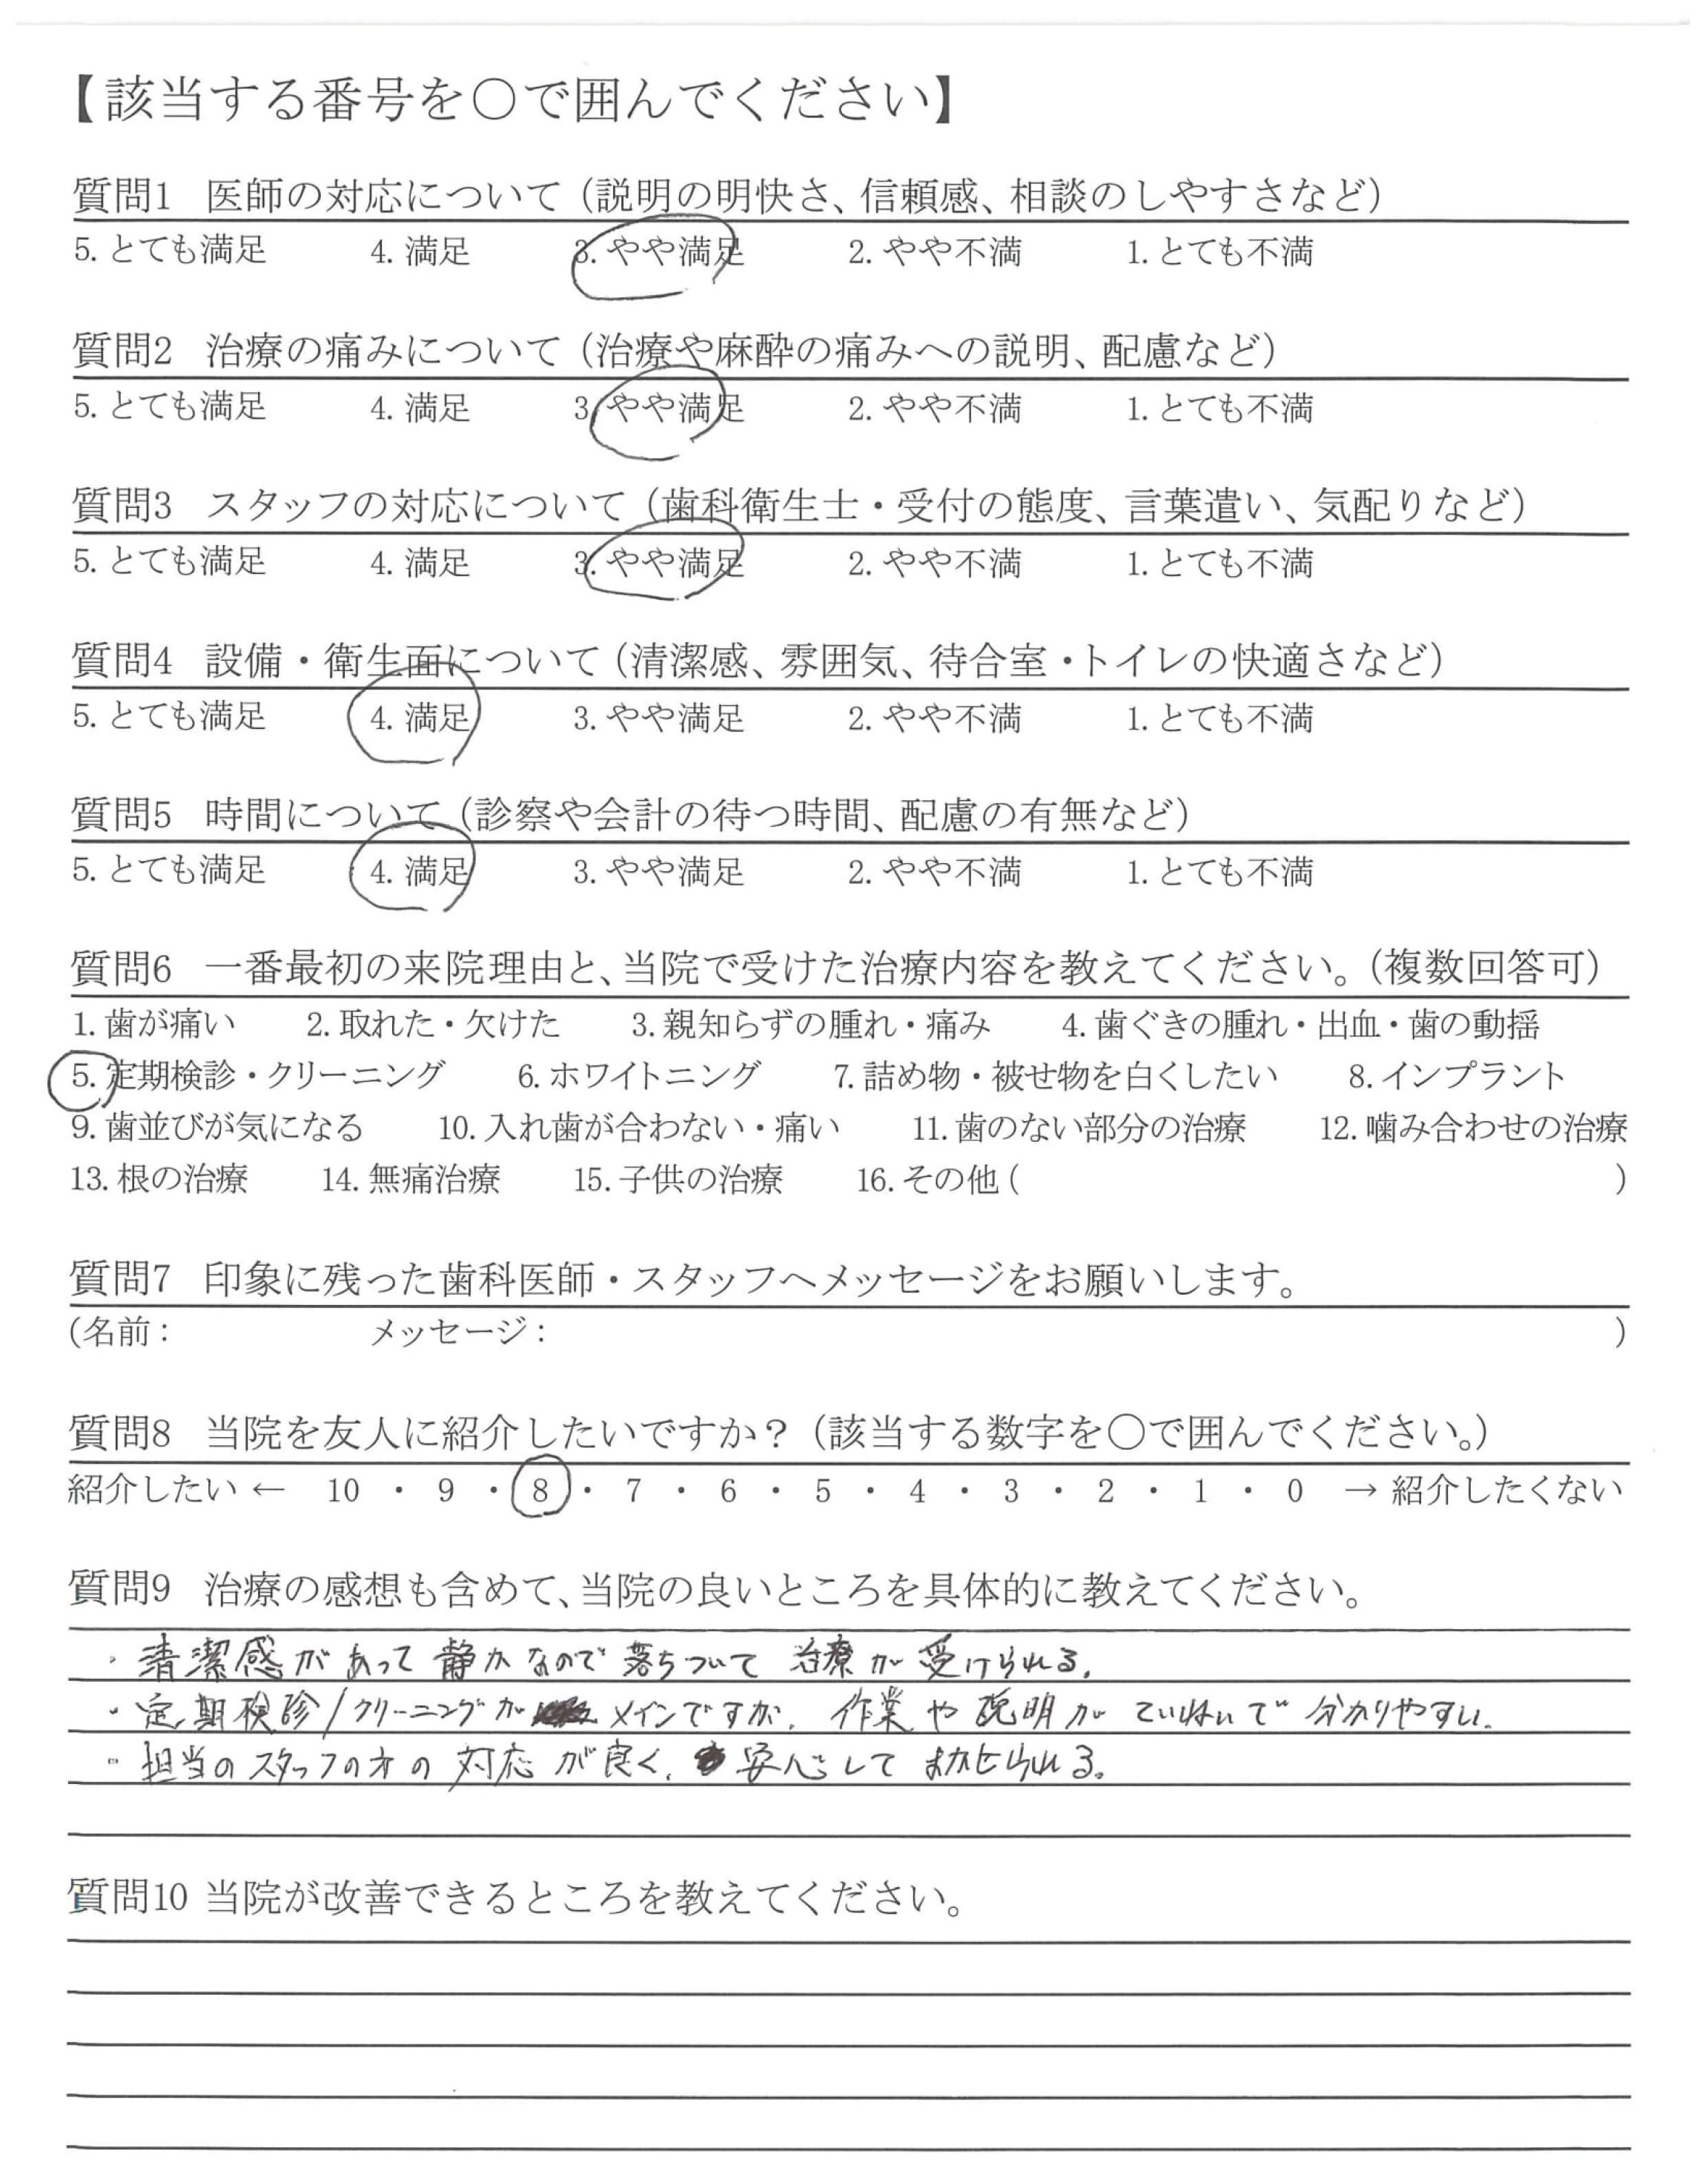 【該当する番号を〇で囲んでください】
質問1 医師の対応について（説明の明快さ、信頼感、相談のしやすさなど）
5. とても満足 4. 満足 3. やや満足 2. やや不満 1. とても不満
質問2 治療の痛みについて（治療や麻酔の痛みへの説明、配慮など）
5. とても満足 4. 満足 3. やや満足 2. やや不満 1. とても不満
質問3 スタッフの対応について（歯科衛生士・受付の態度、言葉遣い、気配りなど）
5. とても満足 4. 満足 3. やや満足 2. やや不満 1. とても不満
質問4 設備・衛生面について（清潔感、雰囲気、待合室・トイレの快適さなど）
5. とても満足 4. 満足 3. やや満足 2. やや不満 1. とても不満
質問5 時間について（診察や会計の待つ時間、配慮の有無など）
5. とても満足 4. 満足 3. やや満足 2. やや不満 1. とても不満
質問6 一番最初の来院理由と、当院で受けた治療内容を教えてください。（複数回答可）
1. 歯が痛い 2. 取れた・欠けた 3. 親知らずの腫れ・痛み 4. 歯ぐきの腫れ・出血・歯の動揺
5. 定期検診・クリーニング 6. ホワイトニング 7. 詰め物・被せ物を白くしたい 8. インプラント
9. 歯並びが気になる 10. 入れ歯が合わない・痛い 11. 歯のない部分の治療 12. 噛み合わせの治療
13. 根の治療 14. 無痛治療 15. 子供の治療 16. その他 ( )
質問7 印象に残った歯科医師・スタッフへメッセージをお願いします。
(名前： メッセージ： )
質問8 当院を友人に紹介したいですか？（該当する数字を〇で囲んでください。）
紹介したい ← 10 ・ 9 ・ 8 ・ 7 ・ 6 ・ 5 ・ 4 ・ 3 ・ 2 ・ 1 ・ 0 → 紹介したくない
質問9 治療の感想も含めて、当院の良いところを具体的に教えてください。
・清潔感があって静かなので落ちついて治療が受けられる。
・定期検診/クリーニングがメインですが、作業や説明がていねいで分かりやすい。
・担当のスタッフの方の対応が良く、安心してまかせられる。
質問10 当院が改善できるところを教えてください。